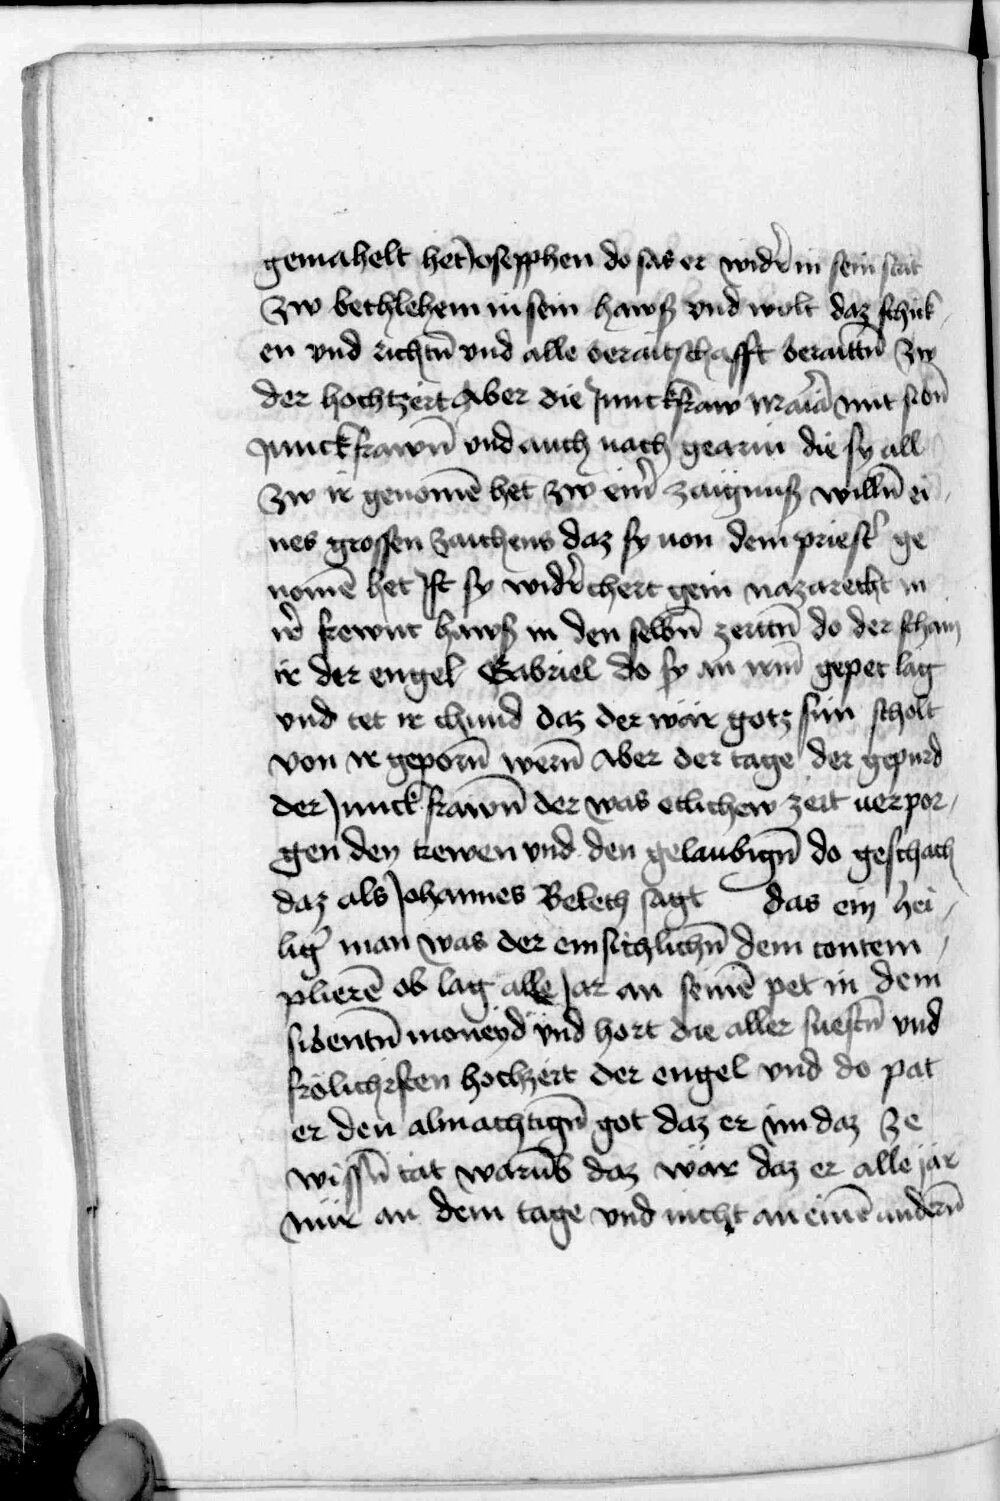 gemahelt het Josepphen do sas er widr̄ in sein stat
zw bethlehem in sein hawſz vnd wolt daz schik-
en vnd richtn̄ vnd alle beraitschafft beraittn̄ zw
der hochtzeit Aber die Junckfraw maīa mit sibn̄
Junckfrawn̄ vnd auch nach gearin die sy all
zw ir genomē het zw eim̄ zaignuſz willn̄ ei-
nes grossen zaichens daz sy von dem priestr̄ ge
nomē het Ist sy widr̄ chert gein nazareth in
ir̄ frewnt hawſz in den selbn̄ zeittn̄ do der schain
ir der engel Gabriel do sy an irm̄ gepet lag
vnd tet ir chund daz der wär gotz sün scholt
von ir geporn̄ wern̄ Aber der tage der gepurd
der Junckfrawn̄ der was etlichew zeit verpor-
gen den trewen vnd den gelaubign̄ do geschach
daz als Johannes Beleth sagt das ein hei-
liḡ man was der einsichlichn̄ dem contem-
plierē ob lag alle Jar an seinē pet in dem
sibentn̄ moneyd vnd hort die aller suestn̄ vnd
frölichisten hochzeit der engel vnd do pat
er den almachtign̄ got daz er im daz ze
wissn̄ tät warūb daz wär daz er alle jär
nür an dem tage vnd nicht an einē andern̄